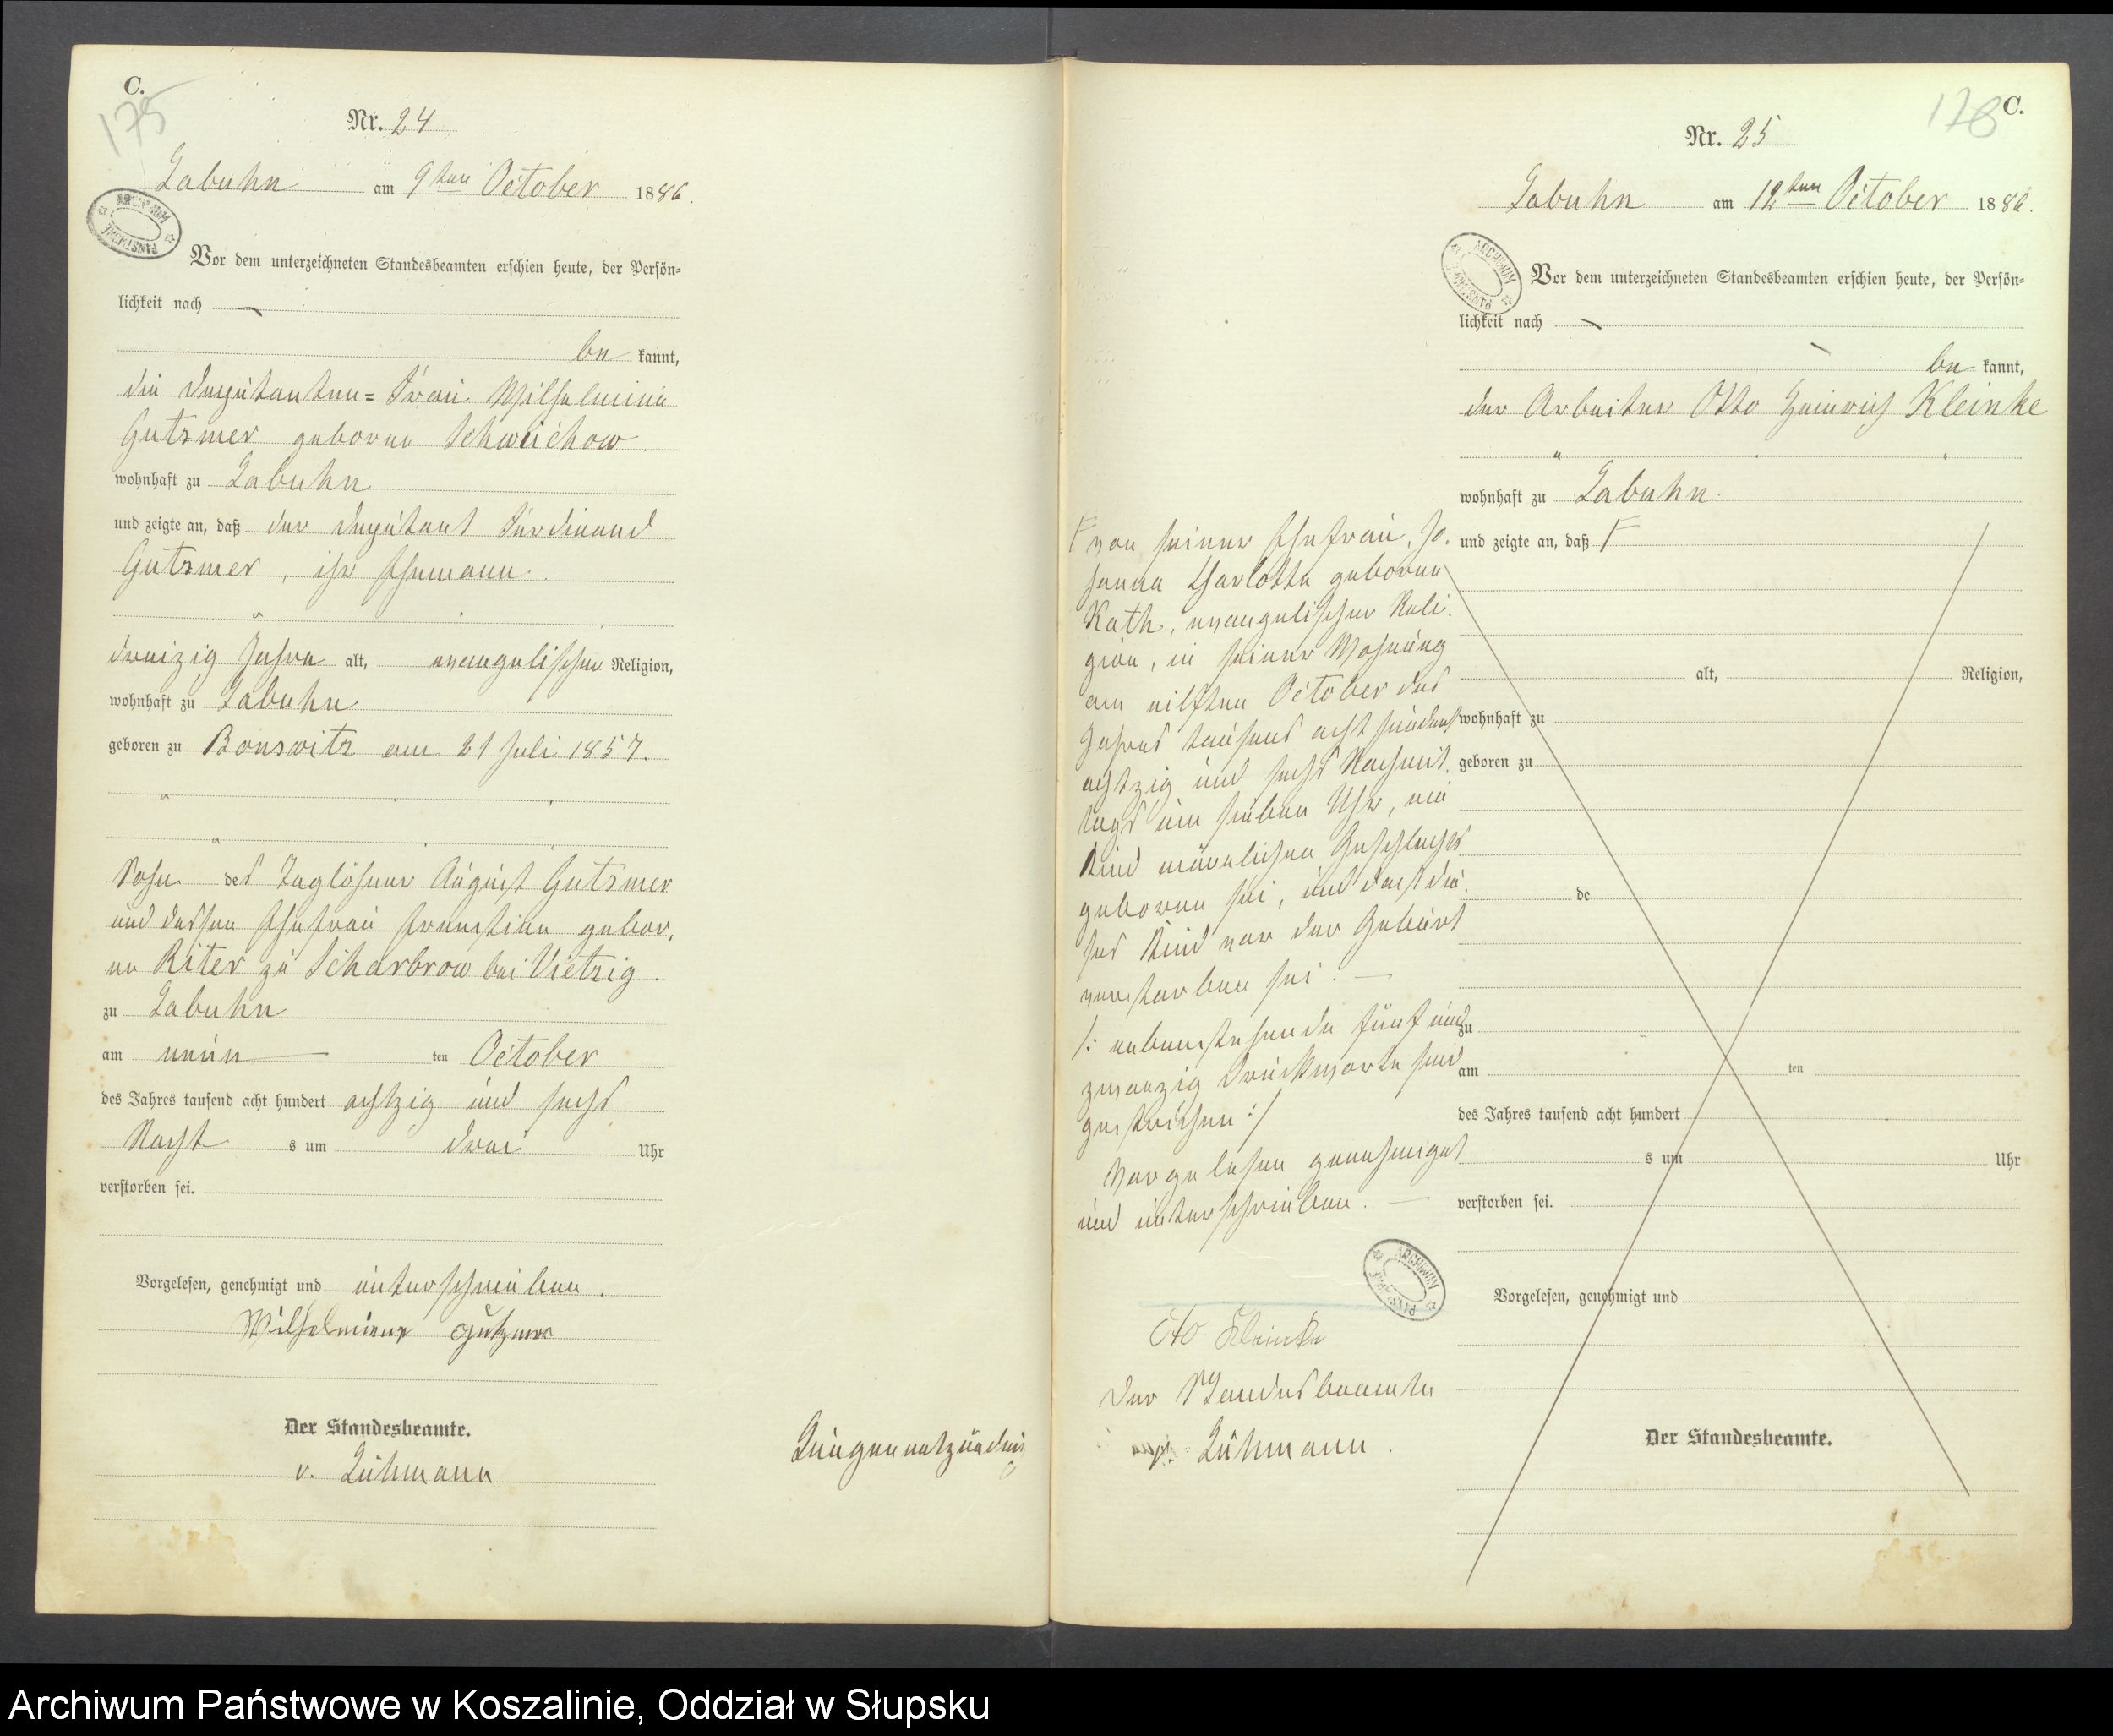 C.
175
Nr. 24
Labuhn am 9ten October 1886.
Vor dem unterzeichneten Standesbeamten erschien heute, der Persön=
lichkeit nach
be kannt,
die Deputanten=Frau Wilhelmine
Gutzmer geborne Schweichow
wohnhaft zu Labuhn
und zeigte an, daß der Deputant Ferdinand
Gutzmer, ihr Ehemann.
dreizig Jahre alt, evangelischer Religion,
wohnhaft zu Labuhn
geboren zu Bonswitz am 21 Juli 1857.
Sohn des Taglöhner August Gutzmer
und dessen Ehefrau Ernestine gebor,
ne Riter zu Scharbrow bei Vietzig.
zu Labuhn
am neun ten October
des Jahres tausend acht hundert achtzig und sechs
Nacht s um drei Uhr
verstorben sei.
Vorgelesen, genehmigt und unterschrieben.
Wilhelmiene Gutzmer
Der Standesbeamte.
v. Lühmann
Lungenentzündung
C.
Nr. 25
Labuhn am 12ten October 1886.
Vor dem unterzeichneten Standesbeamten erschien heute, der Persön=
lichkeit nach
be kannt,
der Arbeiter Otto Heinrich Kleinke
wohnhaft zu Labuhn
und zeigte an, daß F
F von seiner Ehefrau, Jo.
hanna Charlotte geborne
Kath, evangelischer Reli.
gion, in seiner Wohnung
am eilften October des
Jahres tausend acht hundert
achtzig und sechs Nachmit.
tags um sieben Uhr, ein
Kind männlichen Geschlechts
geboren sei, und dass die.
ses Kind vor der Geburt
verstorben sei. —
/: nebenstehende fünf und
zwanzig Druckworte sind
gestrichen :/
Vorgelesen genehmigt
und unterschrieben. —
Otto Kleinke
Der Standesbeamte
v. Lühmann.
alt, Religion,
wohnhaft zu
geboren zu
de
zu
am ten
des Jahres tausend acht hundert
s um Uhr
verstorben sei.
Vorgelesen, genehmigt und
Der Standesbeamte.
Archiwum Państwowe w Koszalinie, Oddział w Słupsku